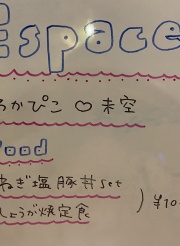 Espace
ろかぴこ♡未空
Food
ねぎ塩豚丼set
しょうが焼定食
) ¥10